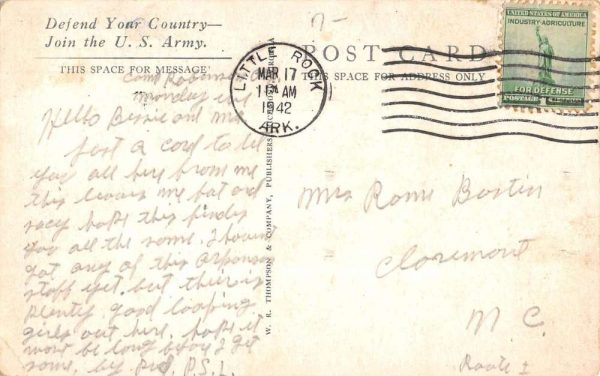 Defend Your Country—
Join the U. S. Army.
THIS SPACE FOR MESSAGE
POST CARD
THIS SPACE FOR ADDRESS ONLY
LITTLE ROCK
MAR 17
11 AM
1942
ARK.
UNITED STATES OF AMERICA
INDUSTRY-AGRICULTURE
FOR DEFENSE
POSTAGE 1¢
W. R. THOMPSON & COMPANY, PUBLISHERS, RICHMOND, VIRGINIA
Camp Robinson
Monday
Hello Bessie and
Just a card to let
you all here from me
this leaves me fat and
sacy hope this finds
you all the same. I haven
got any of this Arkansas
stuff yet, but their is
plenty good looking
girls out here, hope it
wont be long before I get
some, by P.S.L.
Mrs Rome Bostin
Claremont
N C.
Route 1